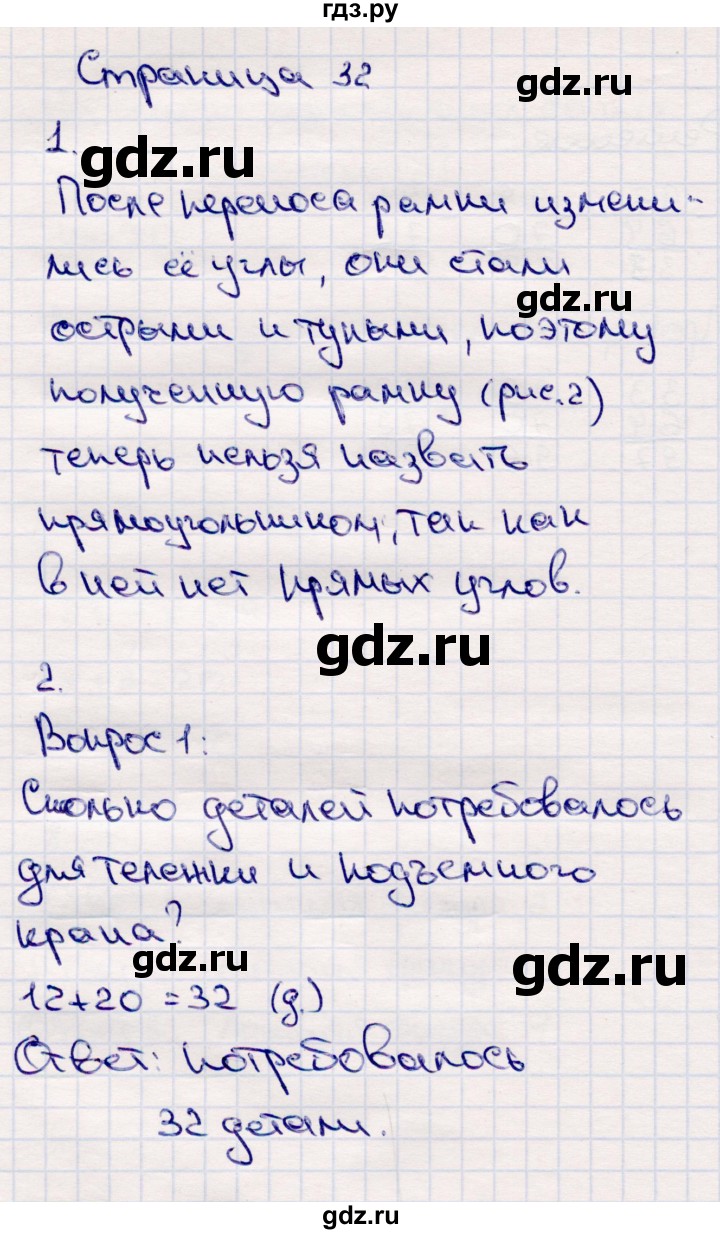 гдз.ру
Страница 32
gdz.ru
1.
gdz.ru
После переноса рамки измени-
лись её углы, они стали
gdz.ru
острыми и тупыми, поэтому
полученную рамку (рис.2)
теперь нельзя назвать
прямоугольником, так как
в ней нет прямых углов.
gdz.ru
2.
Вопрос 1:
Сколько деталей потребовалось
для тележки и подъемного
крана?
gdz.ru
gdz.ru
12+20=32 (д.)
Ответ: потребовалось
32 детали.
gdz.ru